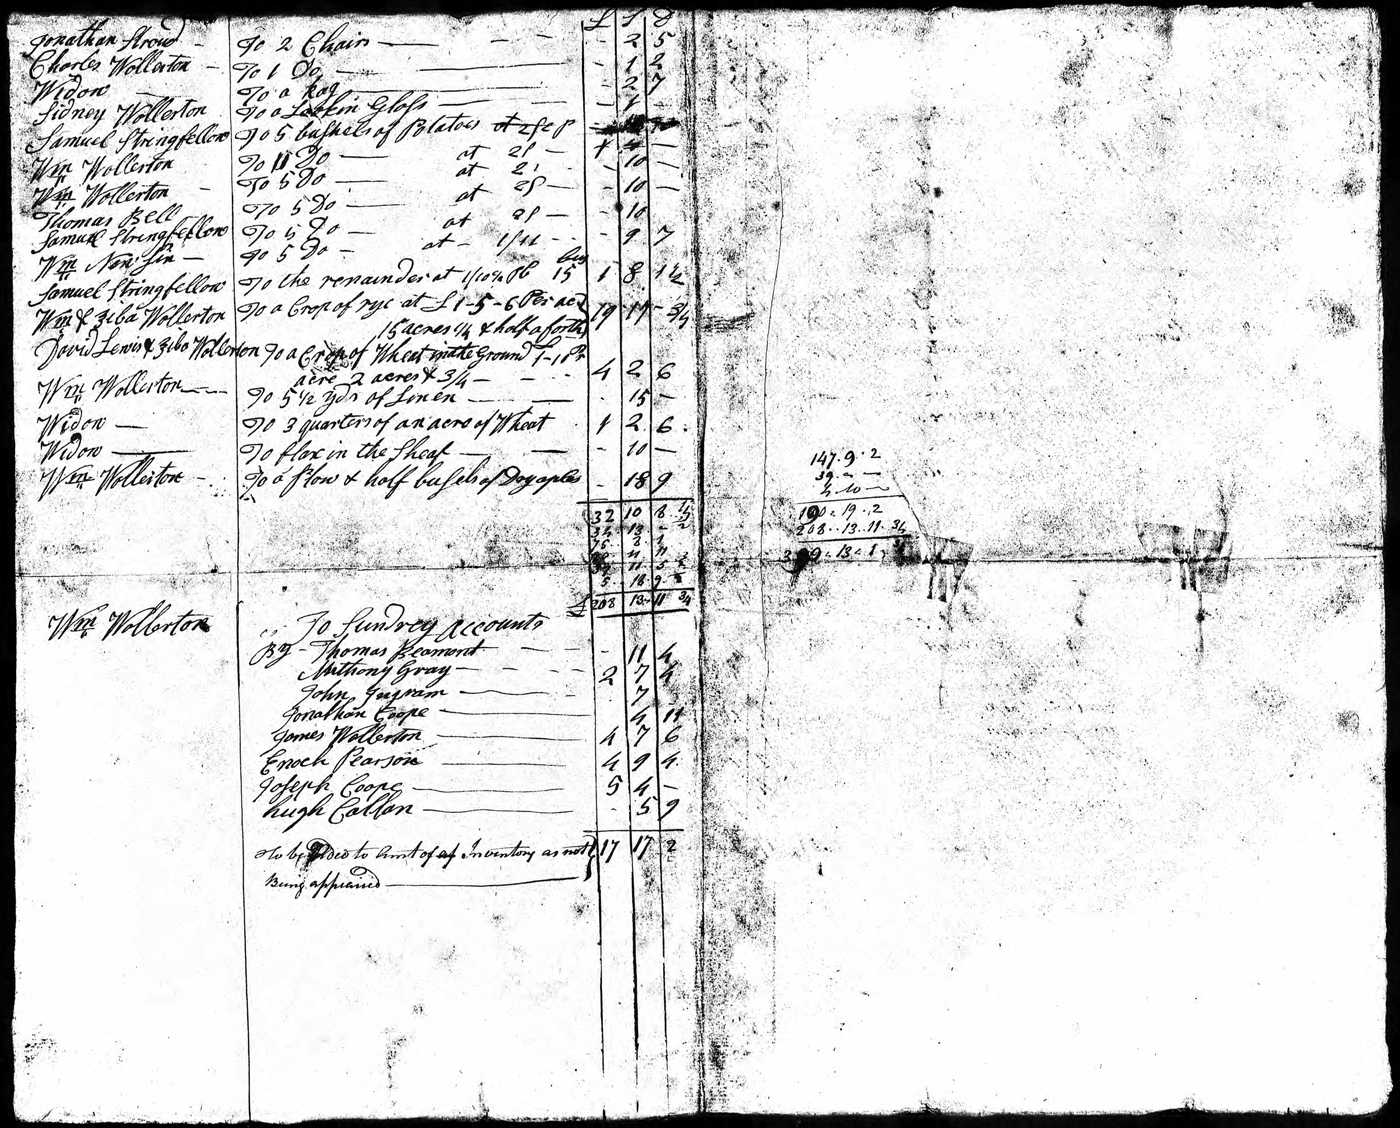 £ S D
Jonathan Stroud - To 2 Chairs - 2 5
Charles Wollerton - To 1 Do - 1 2
Widow To a Kag - 2 7
Sidney Wollerton To a Lookin Glass - 1
Samuel Stringfellow To 5 bushels of Potatoes at 2s
Wm Wollerton To 11 Do at 2s - 1 2 -
Wm Wollerton - To 5 Do at 2s - 10 -
Thomas Bell To 5 Do at 2s - 10 -
Samuel Stringfellow To 5 Do at 2s - 10
Wm To 5 Do - at - 1/11 - 9 7
Samuel Stringfellow To the remainder at 1/10½ Pb 15 bus 1 8 1½
Wm & Ziba Wollerton To a Crop of rye at £1-5-6 Per acr 19 11 - 3/4
15 acres 1/4 & half a forth
David Lewis & Ziba Wollerton To a Crop of Wheat in the Ground 1-1 Pr
acre 2 acres & 3/4 - 4 2 6
Wm Wollerton To 5 ½ yds of Linen - 15 -
Widow - To 3 quarters of an acre of Wheat 1 2 6
Widow To flax in the Sheaf - 10 -
Wm Wollerton - To a Plow & half bushels of Dryaples - 18 9
32 10 8
5 18 9
£ 208 13 11 3/4
147.9.2
190.19.2
208..13..11 3/4
Wm Wollerton To Sundrey Accounts
By - Thomas Beamont - 11 4
Anthony Gray - 2 7 4
John Ingram - 7
Jonathan Coope 4 11
James Wollerton 4 7 6
Enoch Pearson 4 9 4
Joseph Coope 5 4 -
Hugh Callan - 5 9
To be Aded to Amt of Inventory as not 17 17 2
Being appraised